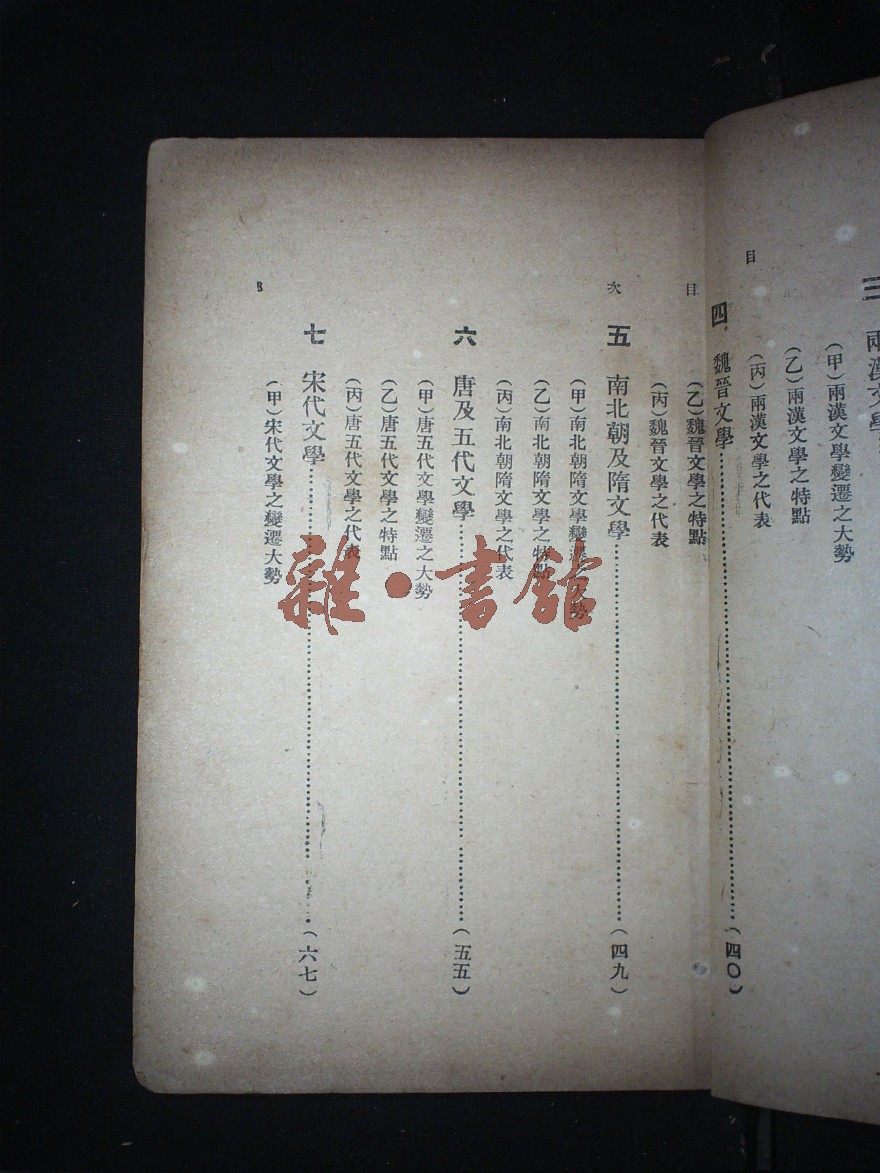 三 兩漢文學
(甲)兩漢文學變遷之大勢
(乙)兩漢文學之特點
(丙)兩漢文學之代表
目
四 魏晉文學……(四〇)
目 次
(乙)魏晉文學之特點
(丙)魏晉文學之代表
五 南北朝及隋文學……(四九)
(甲)南北朝隋文學變遷之大勢
(乙)南北朝隋文學之特點
(丙)南北朝隋文學之代表
六 唐及五代文學……(五五)
(甲)唐五代文學變遷之大勢
(乙)唐五代文學之特點
(丙)唐五代文學之代表
七 宋代文學……(六七)
(甲)宋代文學之變遷大勢
雜·書館